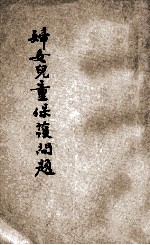 婦女兒童保護問題